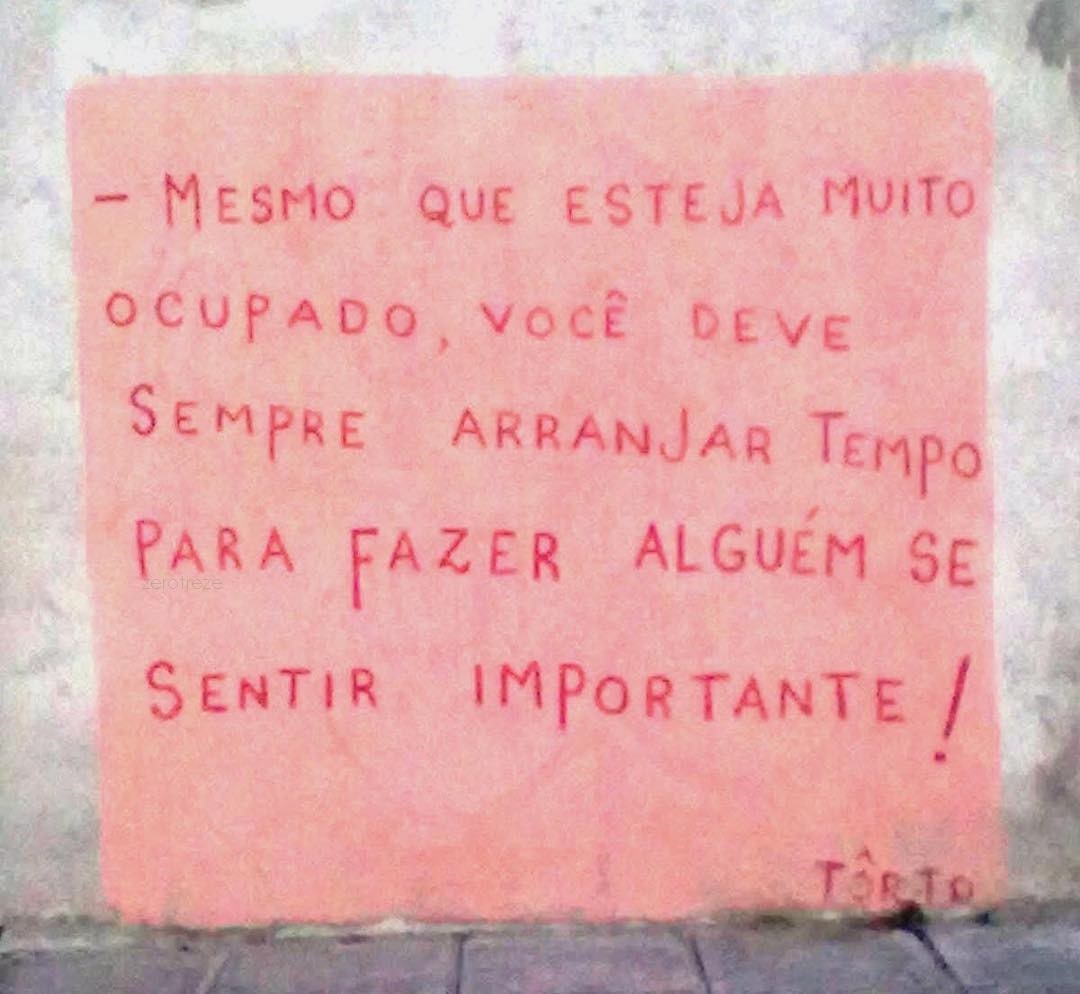 - MESMO QUE ESTEJA MUITO
OCUPADO, VOCÊ DEVE
SEMPRE ARRANJAR TEMPO
PARA FAZER ALGUÉM SE
zerotreze
SENTIR IMPORTANTE!
TÔRTO